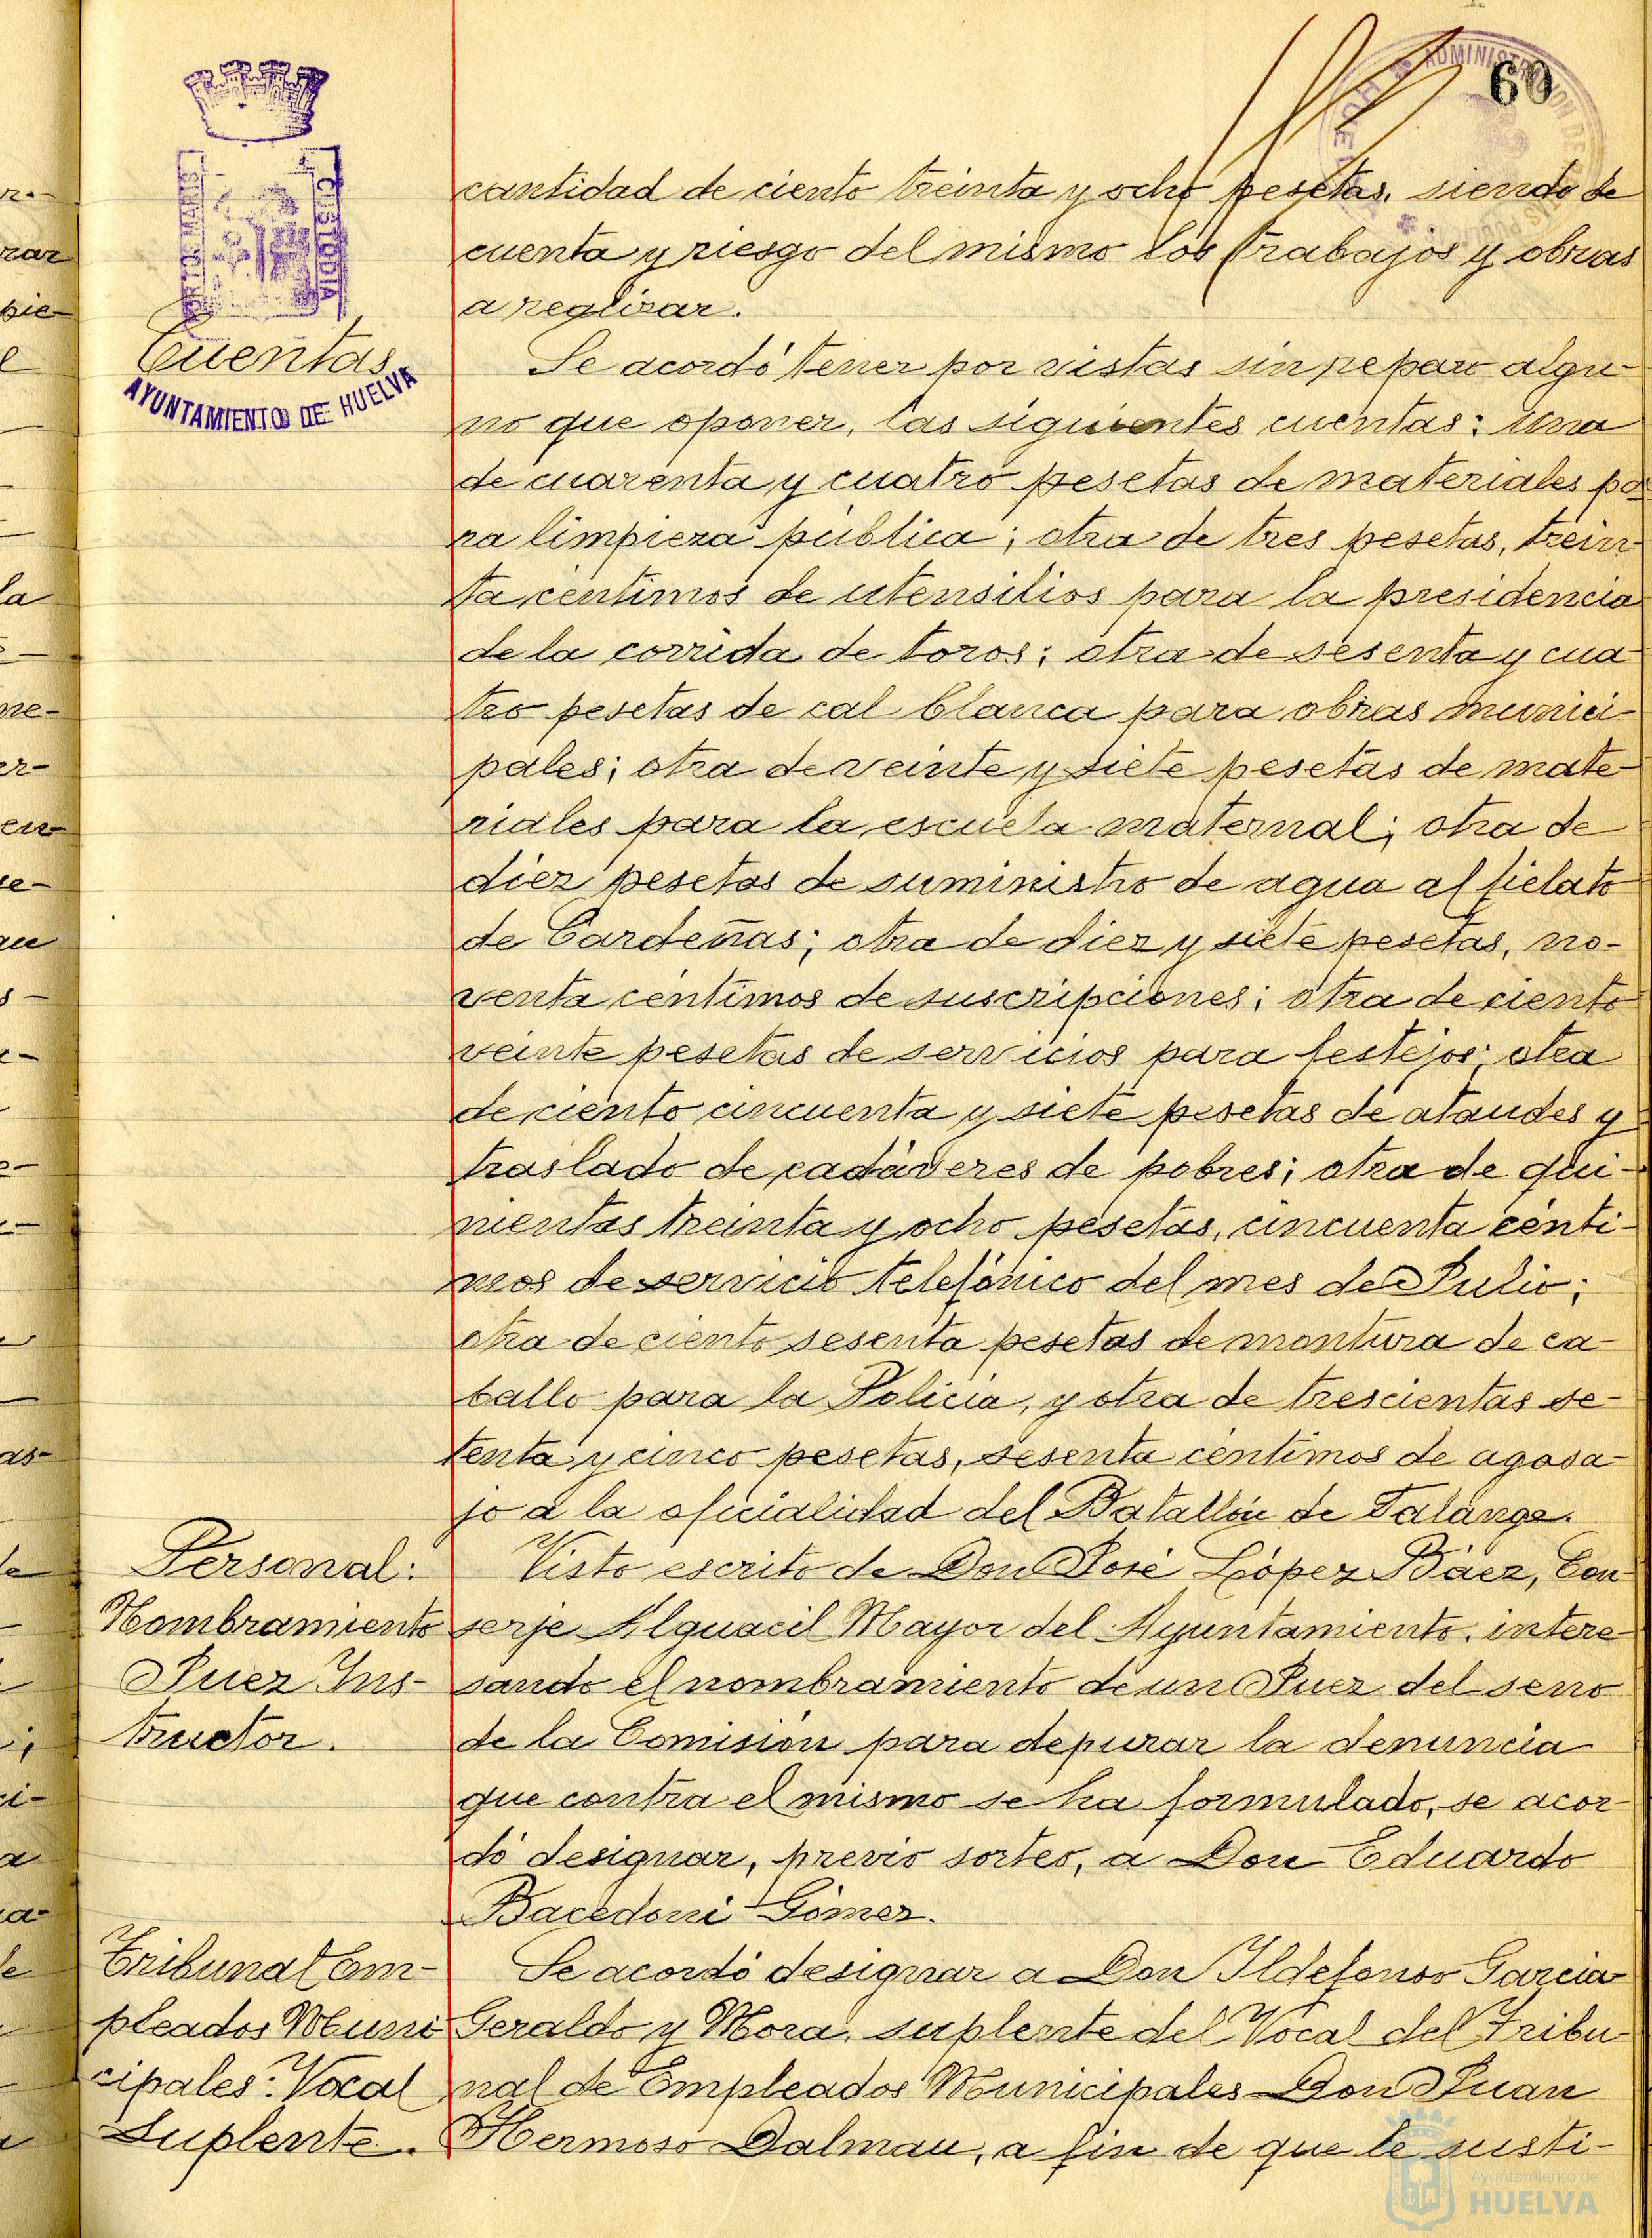 60
ADMINISTRACION DE
HUELVA
PORTUS MARIS
CUSTODIA
AYUNTAMIENTO DE HUELVA
cantidad de ciento treinta y ocho pesetas, siendo de
cuenta y riesgo del mismo los trabajos y obras
a realizar.
Cuentas
Se acordó tener por vistas sin reparo algu-
no que oponer, las siguientes cuentas: una
de cuarenta y cuatro pesetas de materiales pa
ra limpieza pública; otra de tres pesetas, trein-
ta céntimos de utensilios para la presidencia
de la corrida de toros; otra de sesenta y cua
tro pesetas de cal blanca para obras munici-
pales; otra de veinte y siete pesetas de mate-
riales para la escuela maternal; otra de
diez pesetas de suministro de agua al fielato
de Cardeñas; otra de diez y siete pesetas, no-
venta céntimos de suscripciones; otra de ciento
veinte pesetas de servicios para festejos; otra
de ciento cincuenta y siete pesetas de ataudes y
traslado de cadáveres de pobres; otra de qui-
nientas treinta y ocho pesetas, cincuenta cénti-
mos de servicio telefónico del mes de Julio;
otra de ciento sesenta pesetas de montura de ca-
ballo para la Policia, y otra de trescientas se-
tenta y cinco pesetas, sesenta céntimos de agasa-
jo a la oficialidad del Batallón de Talange.
Personal:
Nombramiento
Juez Ins-
tructor.
Visto escrito de Don José López Báez, Con
serje Alguacil Mayor del Ayuntamiento, intere-
sando el nombramiento de un Juez del seno
de la Comisión para depurar la denuncia
que contra el mismo se ha formulado, se acor-
dó designar, previo sorteo, a Don Eduardo
Bacedoni Gómez.
Tribunal Em-
pleados Muni
cipales: Vocal
Suplente.
Se acordó designar a Don Ildefonso Garcia
Geraldo y Mora, suplente del Vocal del Tribu-
nal de Empleados Municipales Don Juan
Hermoso Dalmau, a fin de que le susti-
Ayuntamiento de
HUELVA